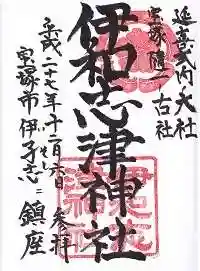 延喜式内大社
宝塚随一古社
伊和志津神社
平成二十七年十二月六日 参拝
宝塚市伊孑志ニ鎮座